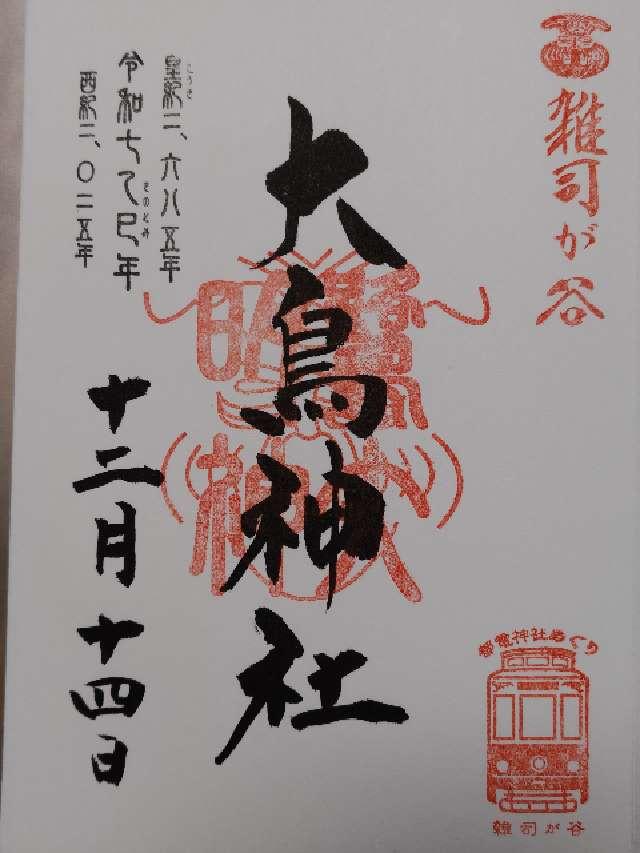 雑司が谷
大鳥神社
皇紀二、六八五年
こうき
令和七乙巳年
きのとみ
西紀二、〇二五年
十二月十四日
都電神社めぐり
雑司が谷